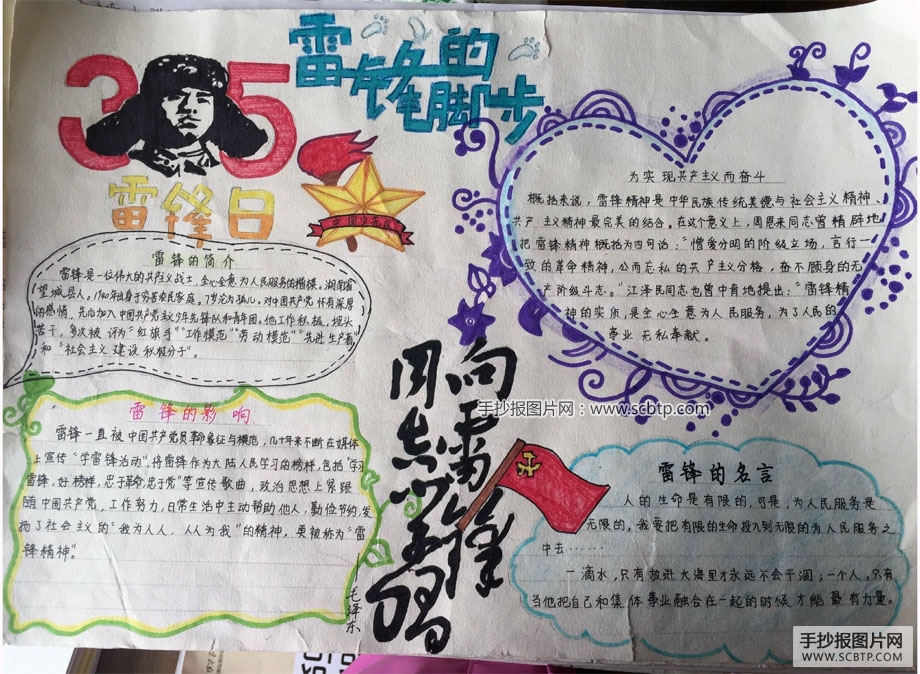 雷锋的
脚步
35
雷锋日
中国少先队
雷锋的简介
雷锋是一位伟大的共产主义战士,全心全意为人民服务的楷模,湖南省
望城县人。1940年出身于穷苦农民家庭。7岁沦为孤儿。对中国共产党怀有深厚
的感情,先后加入中国共产党、少年先锋队和青年团。他工作积极,埋头
苦干,多次被评为“红旗手”“工作模范”“劳动模范”“先进生产者”
和“社会主义建设积极分子”。
雷锋的影响
雷锋一直被中国共产党员革命象征与模范,几十年来不断在媒体
上宣传“学雷锋活动”,将雷锋作为大陆人民学习的榜样,包括“学习
雷锋,好榜样,忠于革命,忠于党”等宣传歌曲,政治思想上紧跟
随中国共产党,工作努力,日常生活中主动帮助他人,勤俭节约,发
扬了社会主义的“我为人人,人人为我”的精神,更被称为“雷
锋精神”。
向雷锋
同志学习
——毛泽东
为实现共产主义而奋斗
概括来说,雷锋精神是中华民族传统美德与社会主义精神、
共产主义精神最完美的结合。在这个意义上,周恩来同志曾精辟地
把雷锋精神概括为四句话:“憎爱分明的阶级立场,言行一
致的革命精神,公而忘私的共产主义分格,奋不顾身的无
产阶级斗志。”江泽民同志也曾中肯地提出:“雷锋精
神的实质,是全心全意为人民服务,为了人民的
事业无私奉献。
雷锋的名言
人的生命是有限的,可是,为人民服务是
无限的,我要把有限的生命投入到无限的为人民服务之
中去……
一滴水,只有放进大海里才永远不会干涸;一个人,只有
当他把自己和集体事业融合在一起的时候才能最有力量。
手抄报图片网:www.scbtp.com
手抄报图片网
WWW.SCBTP.COM